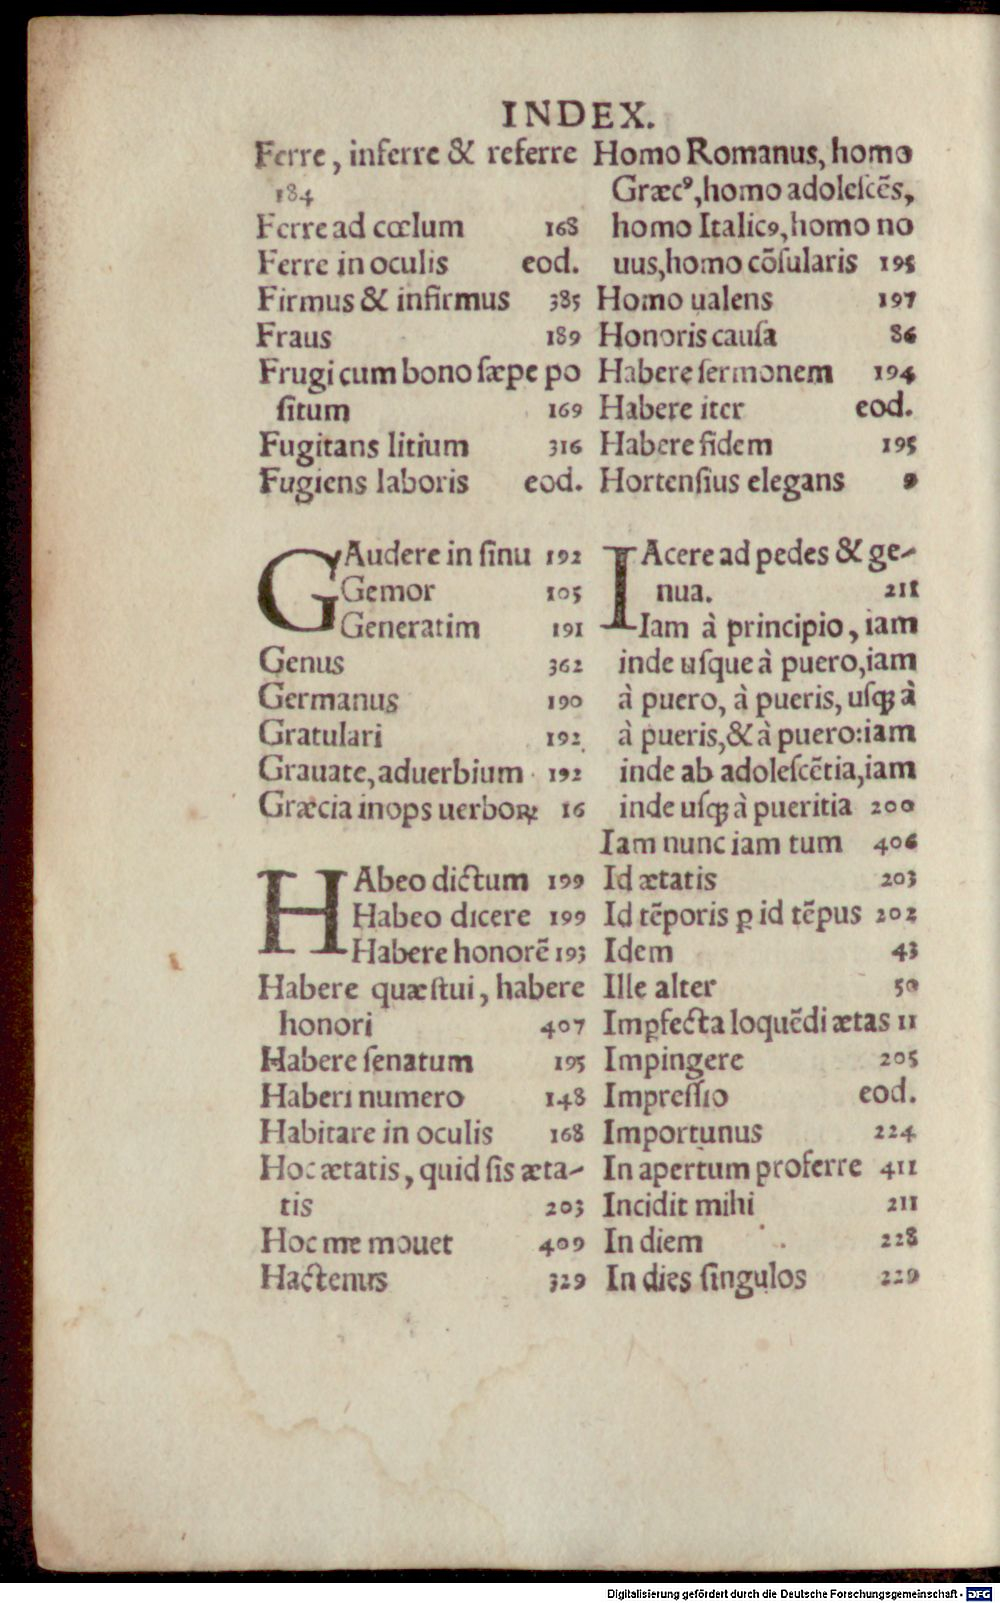 INDEX.
Ferre, inferre & referre
184
Ferre ad cœlum 168
Ferre in oculis eod.
Firmus & infirmus 385
Fraus 189
Frugi cum bono sæpe po
situm 169
Fugitans litium 316
Fugiens laboris eod.
GAudere in sinu 192
Gemor 105
Generatim 191
Genus 362
Germanus 190
Gratulari 192
Grauate, aduerbium 192
Græcia inops uerboꝝ 16
HAbeo dictum 199
Habeo dicere 199
Habere honorē 193
Habere quæstui, habere
honori 407
Habere senatum 195
Haberi numero 148
Habitare in oculis 168
Hoc ætatis, quid sis æta-
tis 203
Hoc me mouet 409
Hactenus 329
Homo Romanus, homo
Græcꝰ, homo adolescēs,
homo Italicꝰ, homo no
uus, homo cōsularis 195
Homo ualens 197
Honoris causa 86
Habere sermonem 194
Habere iter eod.
Habere fidem 195
Hortensius elegans 9
IAcere ad pedes & ge-
nua. 211
Iam à principio, iam
inde usque à puero, iam
à puero, à pueris, usqꝫ à
à pueris, & à puero: iam
inde ab adolescētia, iam
inde usqꝫ à pueritia 200
Iam nunc iam tum 406
Id ætatis 203
Id tēporis ꝓ id tēpus 202
Idem 43
Ille alter 50
Imꝑfecta loquēdi ætas 11
Impingere 205
Impressio eod.
Importunus 224
In apertum proferre 411
Incidit mihi 211
In diem 228
In dies singulos 229
Digitalisierung gefördert durch die Deutsche Forschungsgemeinschaft - DFG